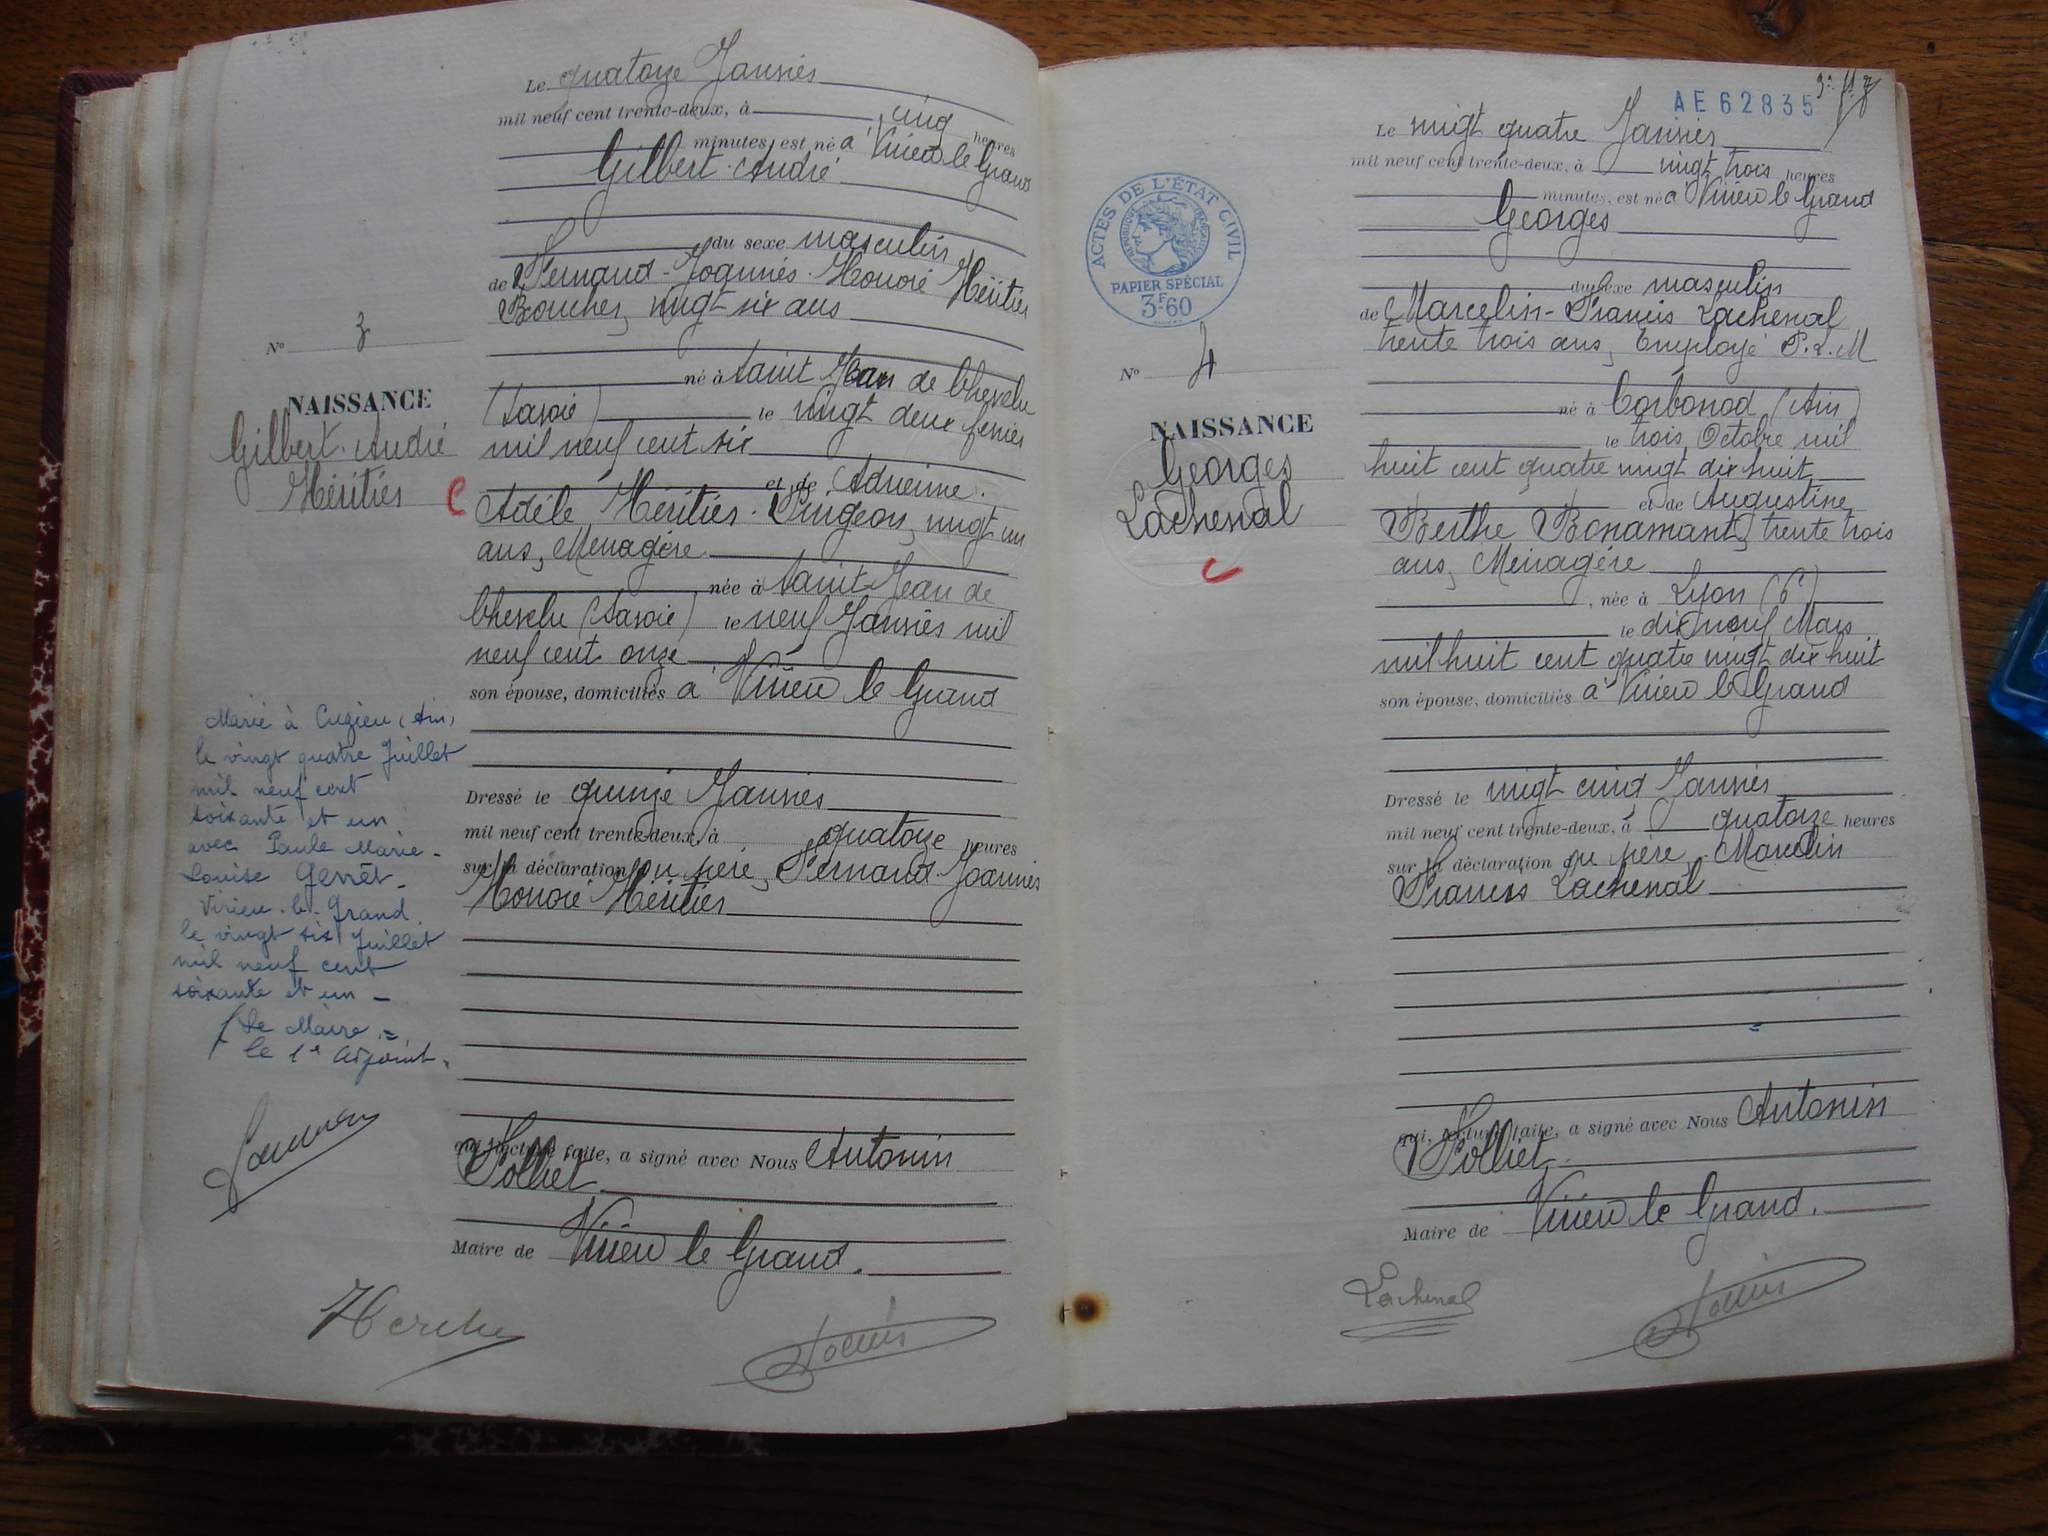 Le quatorze Janvier
mil neuf cent trente-deux, à cinq heures
minutes est né à Virieu le Grand
Gilbert André
du sexe masculin
de Fernand-Joannès-Honoré Héritier
Boucher, vingt six ans
né à Saint Jean de Chevelu
(Savoie) le vingt deux février
mil neuf cent six
et de Adrienne.
Adèle Héritier-Pingeon, vingt un
ans, Ménagère
née à Saint-Jean de
Chevelu (Savoie) le neuf Janvier mil
neuf cent onze
son épouse, domiciliés à Virieu le Grand
Dressé le quinze Janvier
mil neuf cent trente-deux, à quatorze heures
sur la déclaration du père, Fernand-Joannès
Honoré Héritier
qui, lecture faite, a signé avec Nous Antonin
Folliet
Maire de Virieu le Grand.
N° 3
NAISSANCE
Gilbert-André
Héritier
C
Marié à Cuzieu (Ain)
le vingt quatre Juillet
mil neuf cent
soixante et un
avec Paule Marie-
Louise Genret-
Virieu-le-Grand.
le vingt six Juillet
mil neuf cent
soixante et un -
Le Maire:=
le 1er adjoint.
AE 62835
Le vingt quatre Janvier
mil neuf cent trente-deux, à vingt trois heures
minutes, est né à Virieu le Grand
Georges
du sexe masculin
de Marcelin-Francis Lachenal
trente trois ans, Employé P.L.M
né à Corbonod (Ain)
le trois Octobre mil
huit cent quatre vingt dix huit
et de Augustine
Berthe Bonamant, trente trois
ans, Ménagère
, née à Lyon (6e)
le dix neuf Mars
mil huit cent quatre vingt dix huit
son épouse, domiciliés à Virieu le Grand
Dressé le vingt cinq Janvier
mil neuf cent trente-deux, à quatorze heures
sur la déclaration du père, Marcelin
Francis Lachenal
qui, lecture faite, a signé avec Nous Antonin
Folliet
Maire de Virieu le Grand.
Lachenal
ACTES DE L'ÉTAT CIVIL
RÉPUBLIQUE FRANÇAISE
PAPIER SPÉCIAL
3F60
N° 4
NAISSANCE
Georges
Lachenal
C